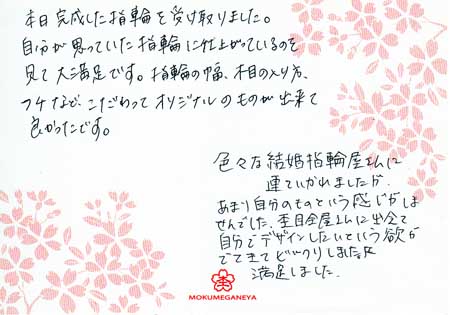 本日完成した指輪を受け取りました。
自分が思っていた指輪に仕上がっているのを
見て大満足です。指輪の幅、木目の入り方、
ツヤなど、こだわってオリジナルのものが出来て
良かったです。
色々な結婚指輪屋さんに
連ていかれましたが
あまり自分のものという感じがしま
せんでした。杢目金屋さんに出会って
自分でデザインしたいという欲が
でてきてビックリしました
満足しました。
MOKUMEGANEYA